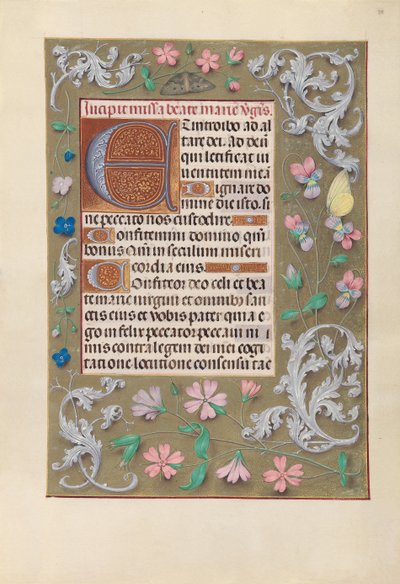 Incipit missa beate marie v̄gīs.
Et introibo ad al
tare dei. ad deū
qui letificat iu
uentutem meā
Dignare do
mine die isto. si
ne peccato nos custodire
Confitemini domino qm̄
bonus Qm̄ in seculum miseri
cordia eius.
Confiteor deo celi et bea
te marie virgini et omnibus san
ctis eius et vobis pater quia e
go infelix peccator peccaui ni
mis contra legem dei mei cogi
tatione locutione consensu tac